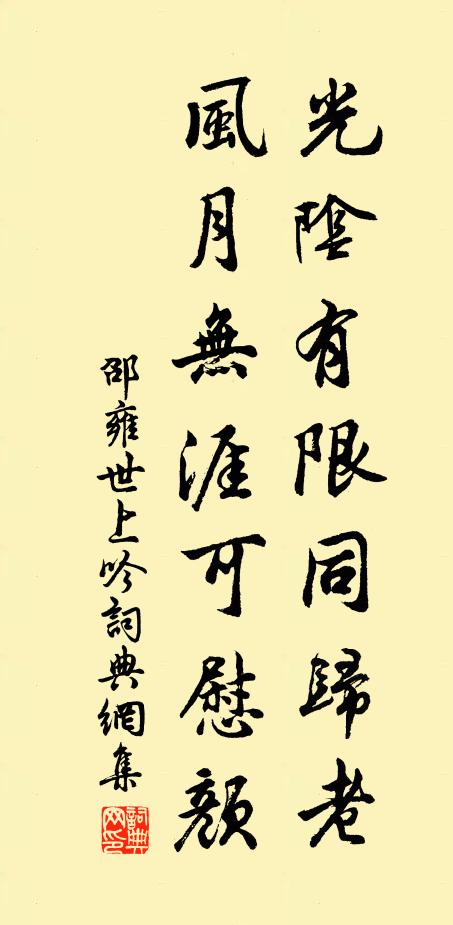 光陰有限同歸老
風月無涯可慰顏
邵雍世上吟詞典網集
詞典网印